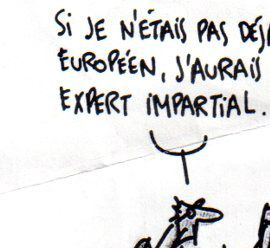 SI JE N'ÉTAIS PAS
EUROPÉEN, J'AURAIS
EXPERT IMPARTIAL.